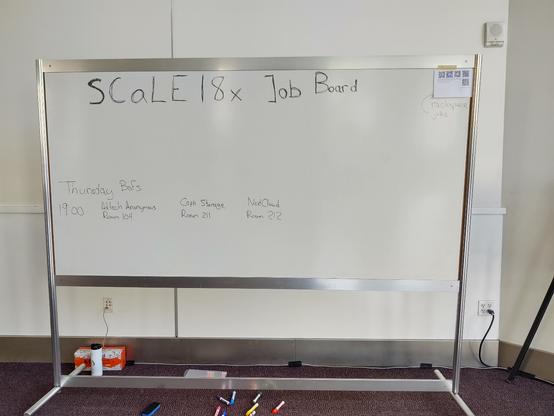 SCaLE 18x Job Board
Rackspace
jobs
Thursday BoFs
19:00
Adtech Anonymous
Room 104
Ceph Storage
Room 211
NextCloud
Room 212